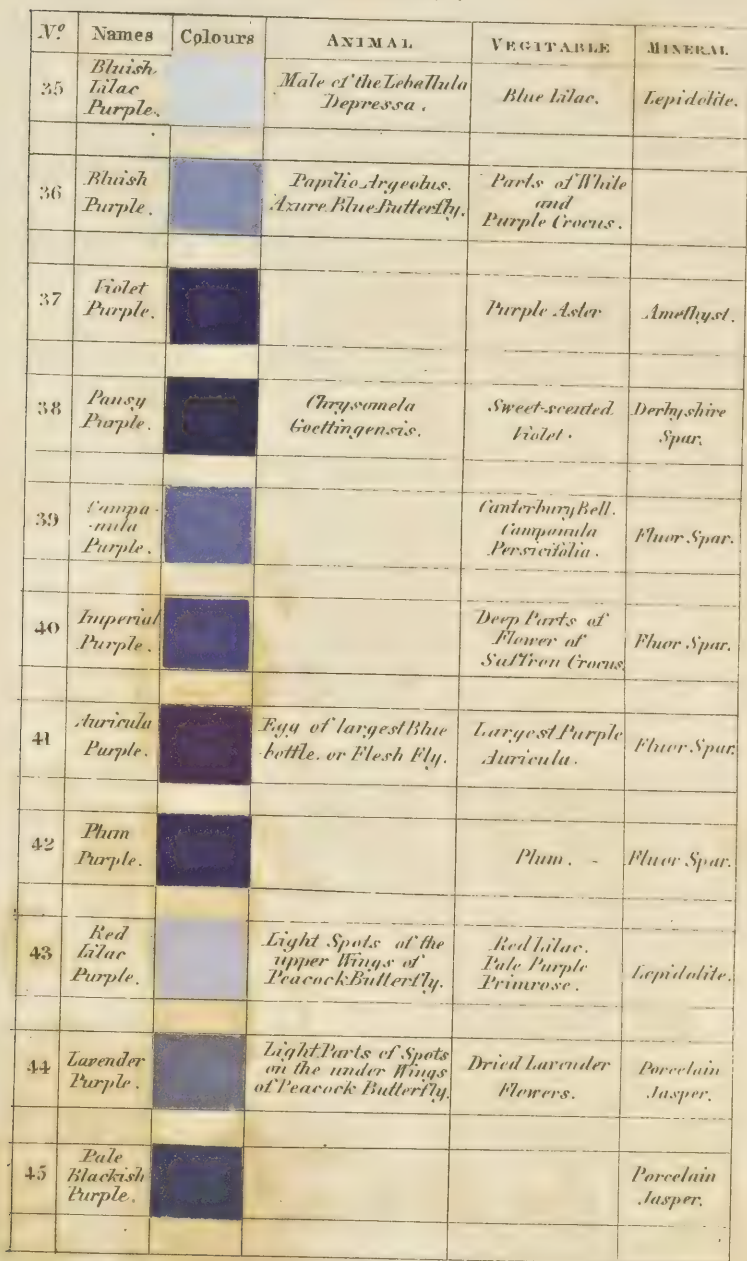 Nº Names Colours ANIMAL VEGITABLE MINERAL
35 Bluish Lilac Purple. Male of the Lebellula Depressa. Blue Lilac. Lepidolite.
36 Bluish Purple. Papilio Argeolus. Azure Blue Butterfly. Parts of White and Purple Crocus.
37 Violet Purple. Purple Aster Amethyst.
38 Pansy Purple. Chrysomela Goettingensis. Sweet-scented Violet. Derbyshire Spar.
39 Campa-nula Purple. Canterbury Bell. Campanula Persicifolia. Fluor Spar.
40 Imperial Purple. Deep Parts of Flower of Saffron Crocus. Fluor Spar.
41 Auricula Purple. Egg of largest Blue bottle. or Flesh Fly. Largest Purple Auricula. Fluor Spar.
42 Plum Purple. Plum. - Fluor Spar.
43 Red Lilac Purple. Light Spots of the upper Wings of Peacock Butterfly. Red Lilac. Pale Purple Primrose. Lepidolite.
44 Lavender Purple. Light Parts of Spots on the under Wings of Peacock Butterfly. Dried Lavender Flowers. Porcelain Jasper.
45 Pale Blackish Purple. Porcelain Jasper.